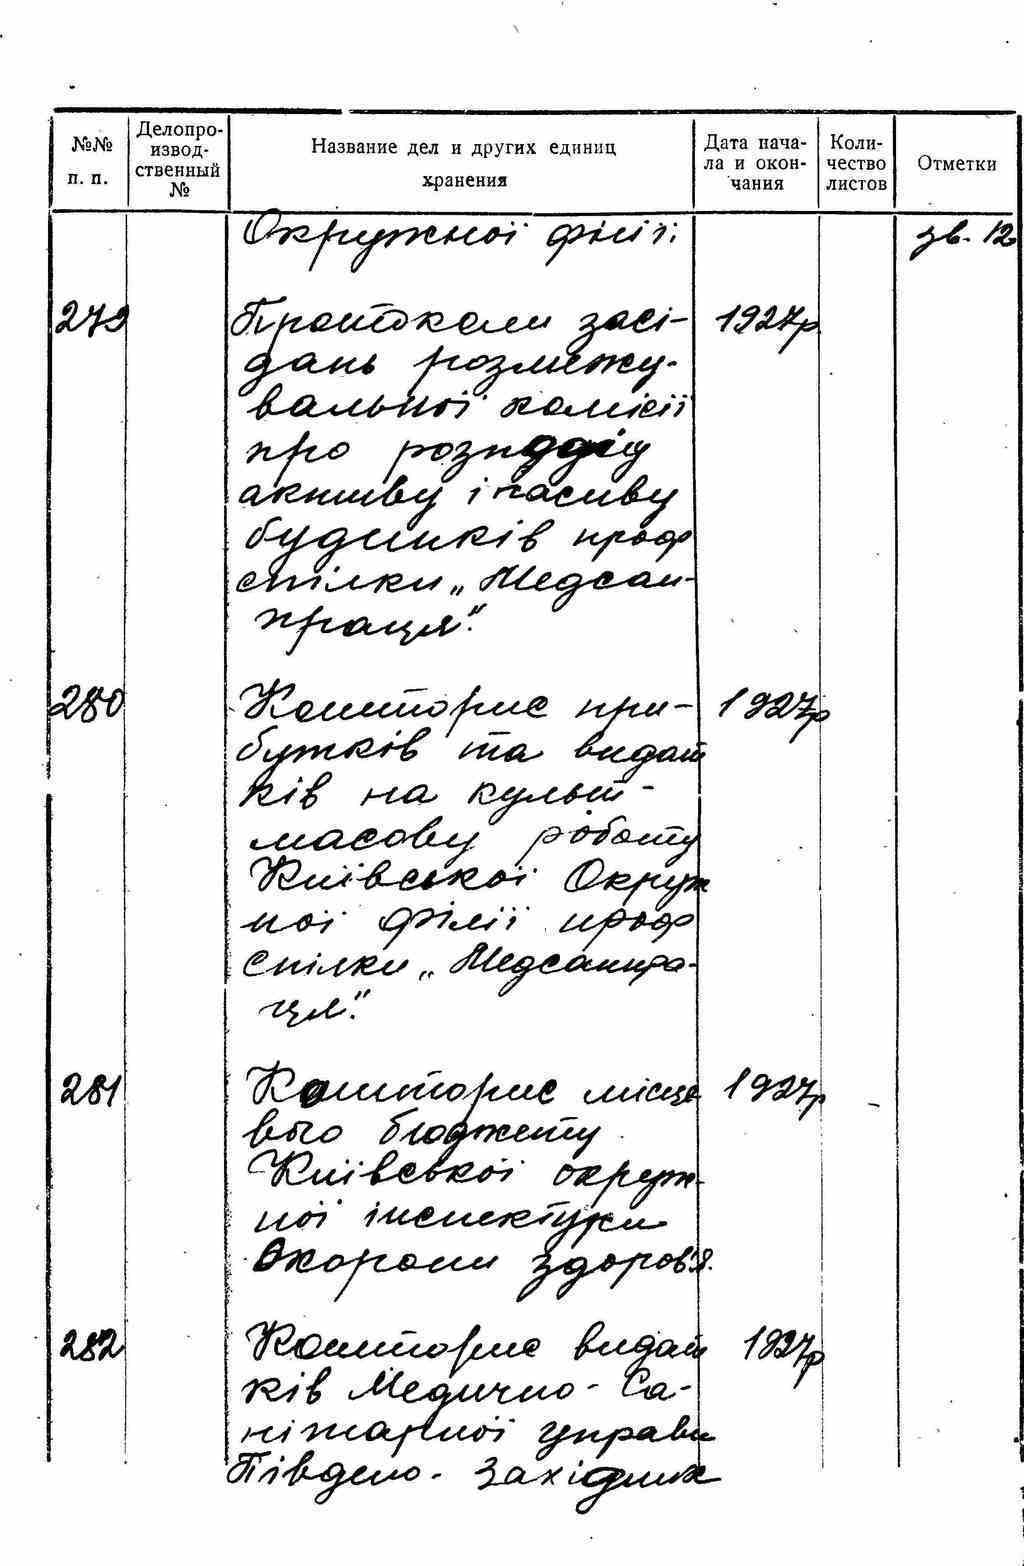 №№ п. п.
Делопро-
извод-
ственный
№
Название дел и других единиц
хранения
Дата нача-
ла и окон-
чания
Коли-
чество
листов
Отметки
Окружної філії; зв. 12
279 Протоколи засі- 1927р
дань розмежу-
вальної комісії
про розподіл
активу і пасиву
будинків проф
спілки „Медсан-
праця".
280 Кошторис при- 1927р
бутків та видат
ків на культ-
масову роботу
Київської Окруж
ної філії проф
спілки „Медсанпра-
ця".
281 Кошторис місце 1927р
вого бюджету
Київської окруж-
ної інспектури
Охорони здоров'я.
282 Кошторис видат 1927р
ків Медично-Са-
нітарної управи
Південо-Західних